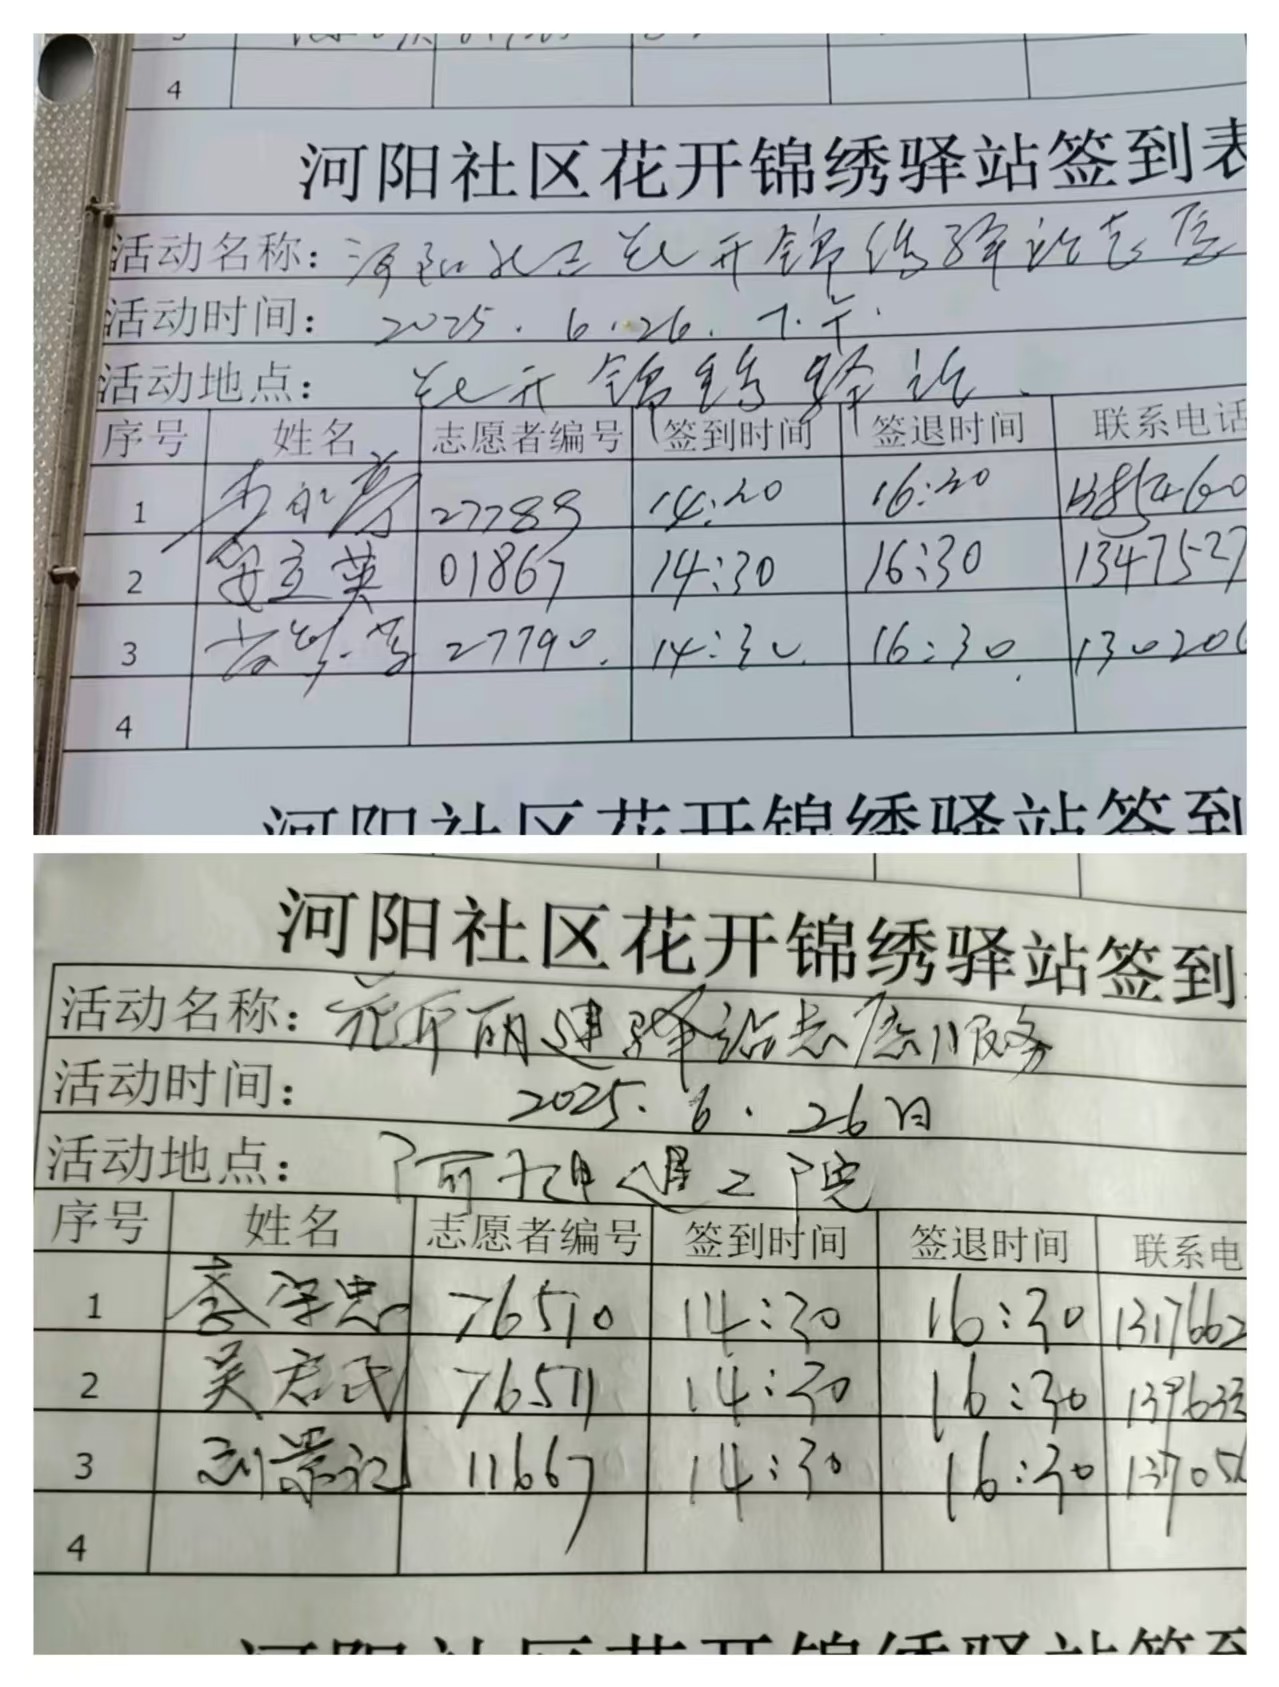 4
河阳社区花开锦绣驿站签到表
活动名称：河阳社区花开锦绣驿站志愿
活动时间：2025.6.26.下午.
活动地点：花开锦绣驿站
序号 姓名 志愿者编号 签到时间 签退时间 联系电话
1 27789 14:20 16:20 1385460
2 安立英 01867 14:30 16:30 1347527
3 27790. 14:30. 16:30. 130206
4
河阳社区花开锦绣驿站签到
河阳社区花开锦绣驿站签到
活动名称：花开丽建驿站志愿服务
活动时间：2025.6.26日
活动地点：
序号 姓名 志愿者编号 签到时间 签退时间 联系电
1 李学忠 76510 14:30 16:30 1317662
2 吴君民 76511 14:30 16:30 139633
3 刘景记 11667 14:30 16:30 137056
4
河阳社区花开锦绣驿站签到